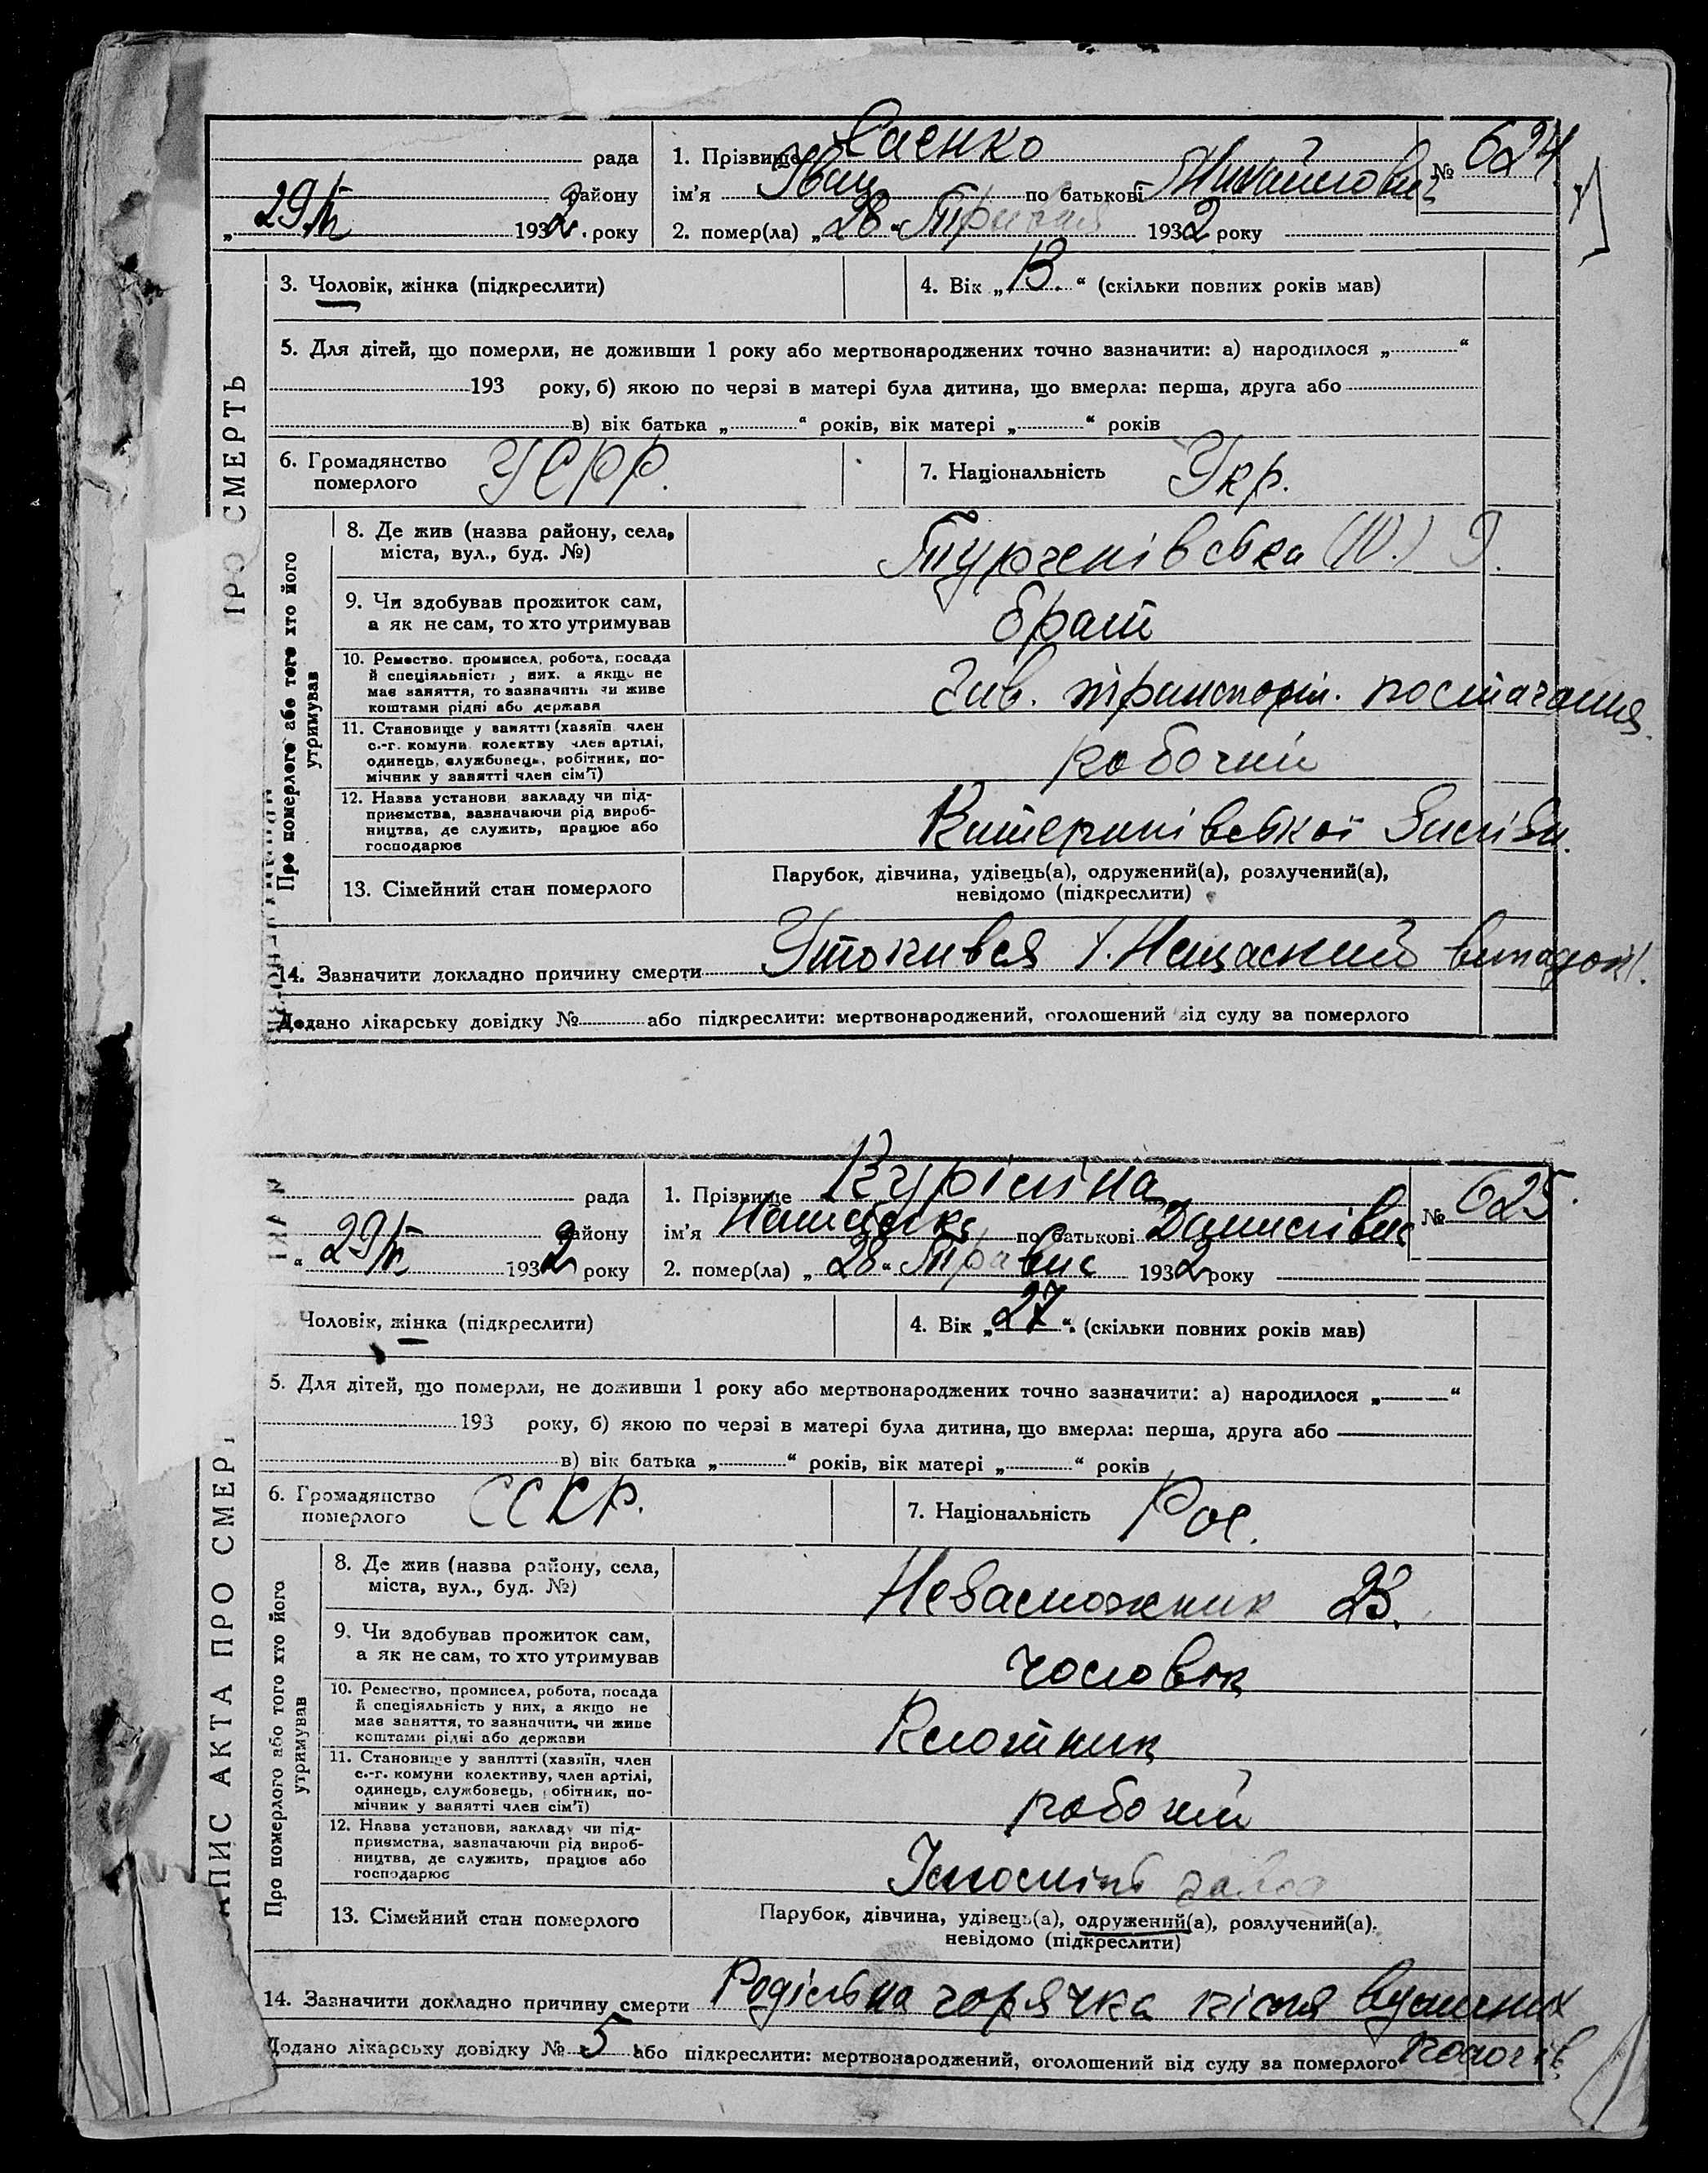 рада
1. Прізвище Саєнко № 624
району
ім'я Іван по батькові Михайлович
„29/V 1932 року
2. помер(ла) „28“ Травня 1932 року
ПРО СМЕРТЬ
3. Чоловік, жінка (підкреслити)
4. Вік „13.“ (скільки повних років мав)
5. Для дітей, що померли, не доживши 1 року або мертвонароджених точно зазначити: а) народилося „ “
193 року, б) якою по черзі в матері була дитина, що вмерла: перша, друга або
в) вік батька „ “ років, вік матері „ “ років
6. Громадянство
померлого
УСРР.
7. Національність Укр.
Про померлого або того хто його
утримував
8. Де жив (назва району, села,
міста, вул., буд. №)
Тургенівська
9. Чи здобував прожиток сам,
а як не сам, то хто утримував
брат
10. Ремество, промисел, робота, посада
й спеціяльність у них, а якщо не
має заняття, то зазначить чи живе
коштами рідні або держави
Зав. транспорт. постачання
11. Становище у занятті (хазяїн член
с.-г. комуни колектву член артілі,
одинець, службовець, робітник, по-
мічник у занятті член сім'ї)
робочий
12. Назва установи закладу чи під-
приємства, зазначаючи рід вироб-
ництва, де служить, працює або
господарює
Катеринівської
13. Сімейний стан померлого
Парубок, дівчина, удівець(а), одружений(а), розлучений(а),
невідомо (підкреслити)
14. Зазначити докладно причину смерти Утопився /. Нещасний випадок/.
Додано лікарську довідку № або підкреслити: мертвонароджений, оголошений від суду за померлого
рада
1. Прізвище № 625.
району
ім'я по батькові Данилівна
„29/V 1932 року
2. помер(ла) „28“ Травня 1932 року
АПИС АКТА ПРО СМЕР
Чоловік, жінка (підкреслити)
4. Вік „27“. (скільки повних років мав)
5. Для дітей, що померли, не доживши 1 року або мертвонароджених точно зазначити: а) народилося „ “
193 року, б) якою по черзі в матері була дитина, що вмерла: перша, друга або
в) вік батька „ “ років, вік матері „ “ років
6. Громадянство
померлого
7. Національність Рос.
Про померлого або того хто його
утримував
8. Де жив (назва району, села,
міста, вул., буд. №)
23.
9. Чи здобував прожиток сам,
а як не сам, то хто утримував
чоловік
10. Ремество, промисел, робота, посада
й спеціяльність у них, а якщо не
має заняття, то зазначити, чи живе
коштами рідні або держави
11. Становище у занятті (хазяїн, член
с.-г. комуни колективу, член артілі,
одинець, службовець, робітник, по-
мічник у занятті член сім'ї)
робочий
12. Назва установи, закладу чи під-
приємства, зазначаючи рід вироб-
ництва, де служить, працює або
господарює
завод
13. Сімейний стан померлого
Парубок, дівчина, удівець(а), одружений(а), розлучений(а).
невідомо (підкреслити)
14. Зазначити докладно причину смерти Родільна горячка після
Додано лікарську довідку № 5 або підкреслити: мертвонароджений, оголошений від суду за померлого пологів